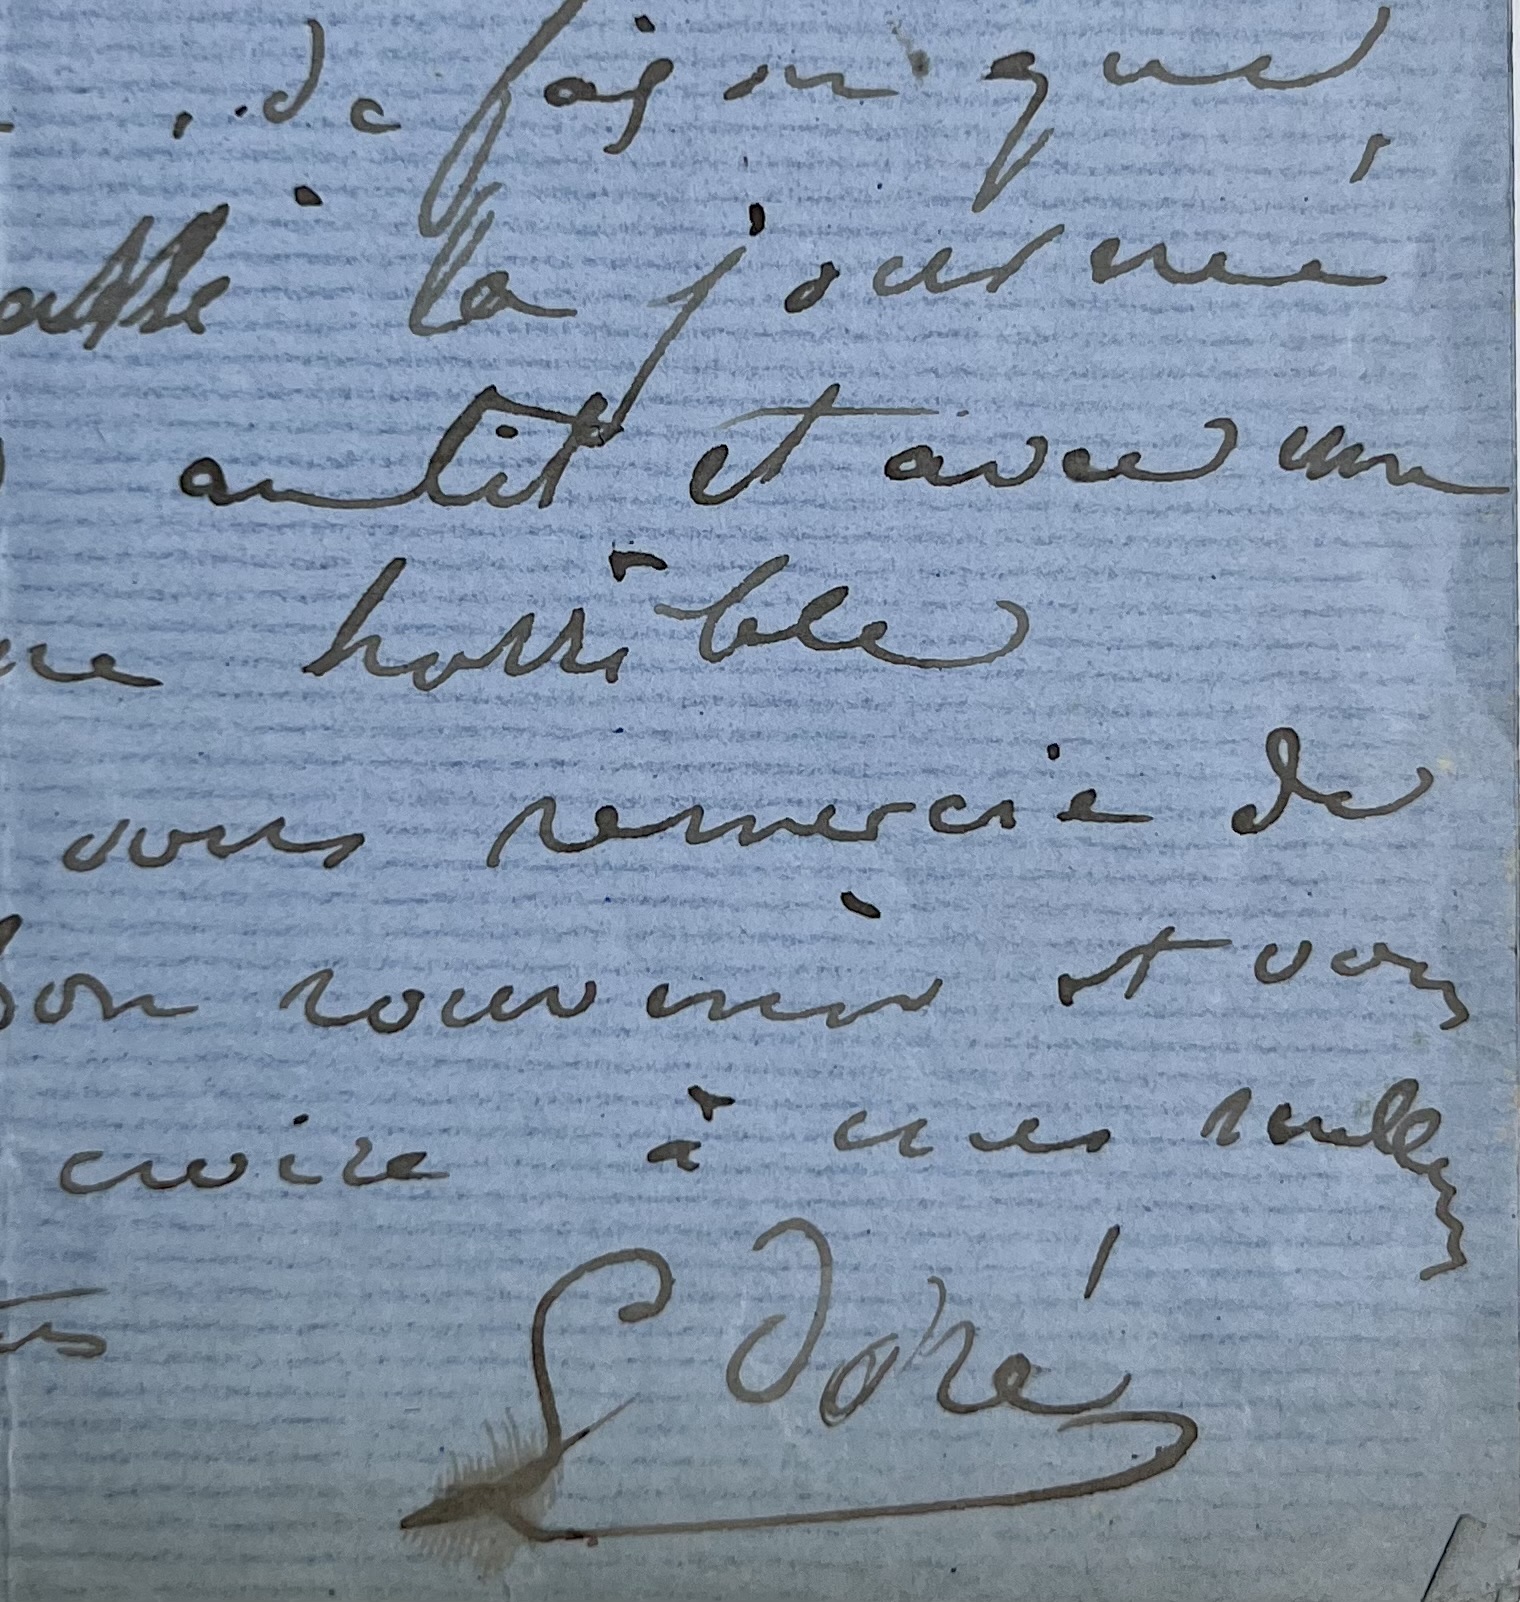 de façon que
la journée
au lit et avec un
horrible
vous remercie de
bon souvenir et vous
croire à mes meilleurs
G Doré